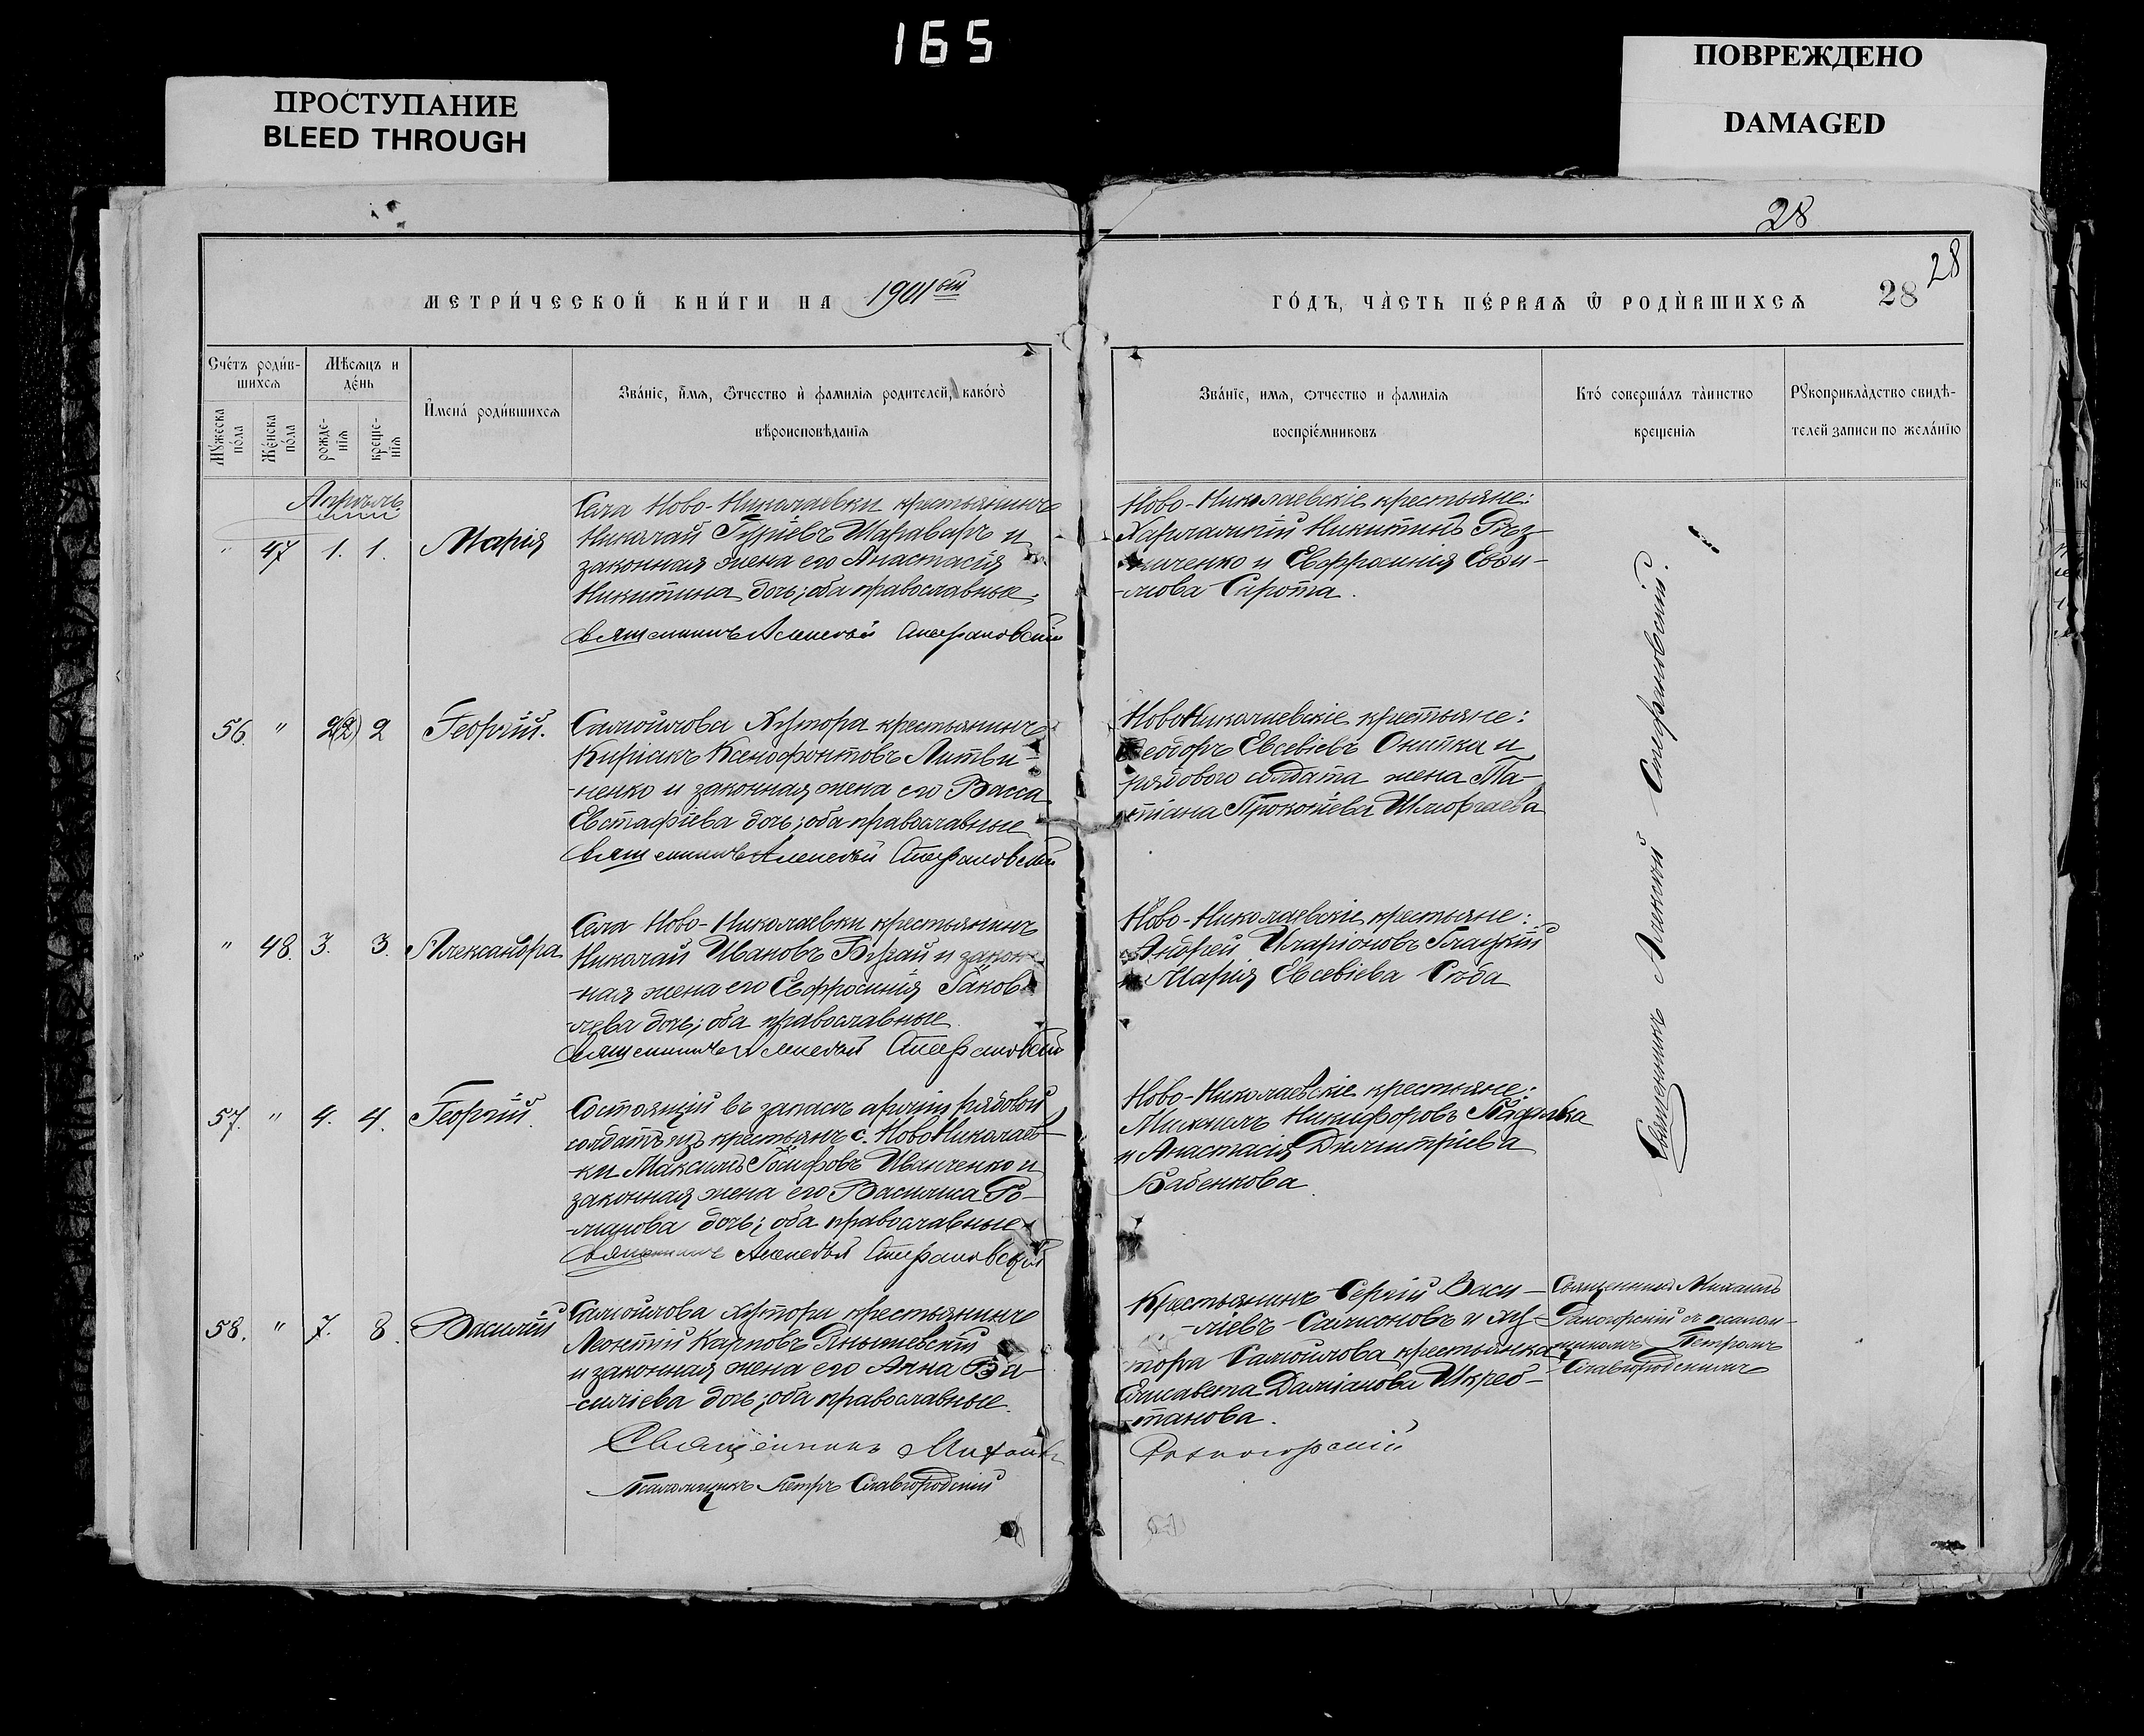 165
ПРОСТУПАНИЕ
BLEED THROUGH
ПОВРЕЖДЕНО
DAMAGED
28
28
28
МЕТРИ́ЧЕСКОЙ КНИ́ГИ НА 1901
ГО́ДЪ, ЧА̀СТЬ ПЕ́РВАѦ Ѿ РОДИ́ВШИХСѦ
Сче́тъ роди́в-
шихсѧ
Мѣ́сѧцъ и
де́нь
Мꙋ́жеска
по́ла
Же́нска
по́ла
рожде-
нїѧ
креще-
нїѧ
И҆мена́ роди́вшихсѧ
Зва́нїе, и҆́мѧ, ѻ҆́тчество и҆ фамилїѧ родителей, како́гѡ
вѣроисповѣ́данїѧ
Зва́нїе, имѧ, ѻтчество и фамилїѧ
воспрїе́мниковъ
Кто́ соверша́лъ та́инство
крещенїѧ
Рꙋкоприкла́дство свидѣ-
телей записи по жела́нїю
Апрѣль
" 47 1. 1. Марія
Села Ново-Николаевки крестьянинъ
Николай Гуріевъ Шараваръ и
законная жена его Анастасія
Никитина дочь; оба православные.
Священникъ Алексѣй Стефановскій
Ново-Николаевскіе крестьяне:
Харлампій Никитинъ Рѣз-
ниченко и Евфросинія Ефи-
-мова Сирота.
56. " 2(2) 2 Георгій.
Самойлова Хутора крестьянинъ
Киріакъ Ксенофонтовъ Литви-
-ненко и законная жена его Васса
Евстафіева дочь; оба православные
Священникъ Алексѣй Стефановскій
НовоНиколаевскіе крестьяне:
Ѳеодоръ Евсевіевъ Онипка и
рядового солдата жена Та-
тіана Прокопіева
" 48. 3. 3. Александра
Села Ново-Николаевки крестьянинъ
Николай Ивановъ Бугай и закон-
-ная жена его Евфросинія Іаков-
-лева дочь; оба православные
Священникъ Алексѣй Стефановскій
Ново-Николаевскіе крестьяне:
Андрей Иларіоновъ
и Марія Евсевіева
57. " 4. 4. Георгій.
Состоящій въ запасѣ арміи рядовой
солдатъ изъ крестьянъ с. НовоНиколаев-
-ки Максимъ Іосифовъ Иванченко и
законная жена его Василиса Ро-
-манова дочь; оба православные
Священникъ Алексѣй Стефановскій
Ново-Николаевскіе крестьяне:
Михаилъ Никифоровъ
и Анастасія Димитріева
Бабенкова.
Священникъ Алексѣй Стефановскій.
58. " 7. 8. Василій
Самойлова хутора крестьянинъ
Леонтій Карповъ Янышевскій
и законная жена его Анна Ва-
-силіева дочь; оба православные.
Священникъ Михаилъ
Псаломщикъ Петръ Славгородскій
Крестьянинъ Сергій Васи-
-ліевъ Самсоновъ и ху-
тора Самойлова крестьянка
Елисавета Даміанова Шкреб-
-танова.
Священникъ Михаилъ
съ псалом-
щикомъ Петромъ
Славгородскимъ